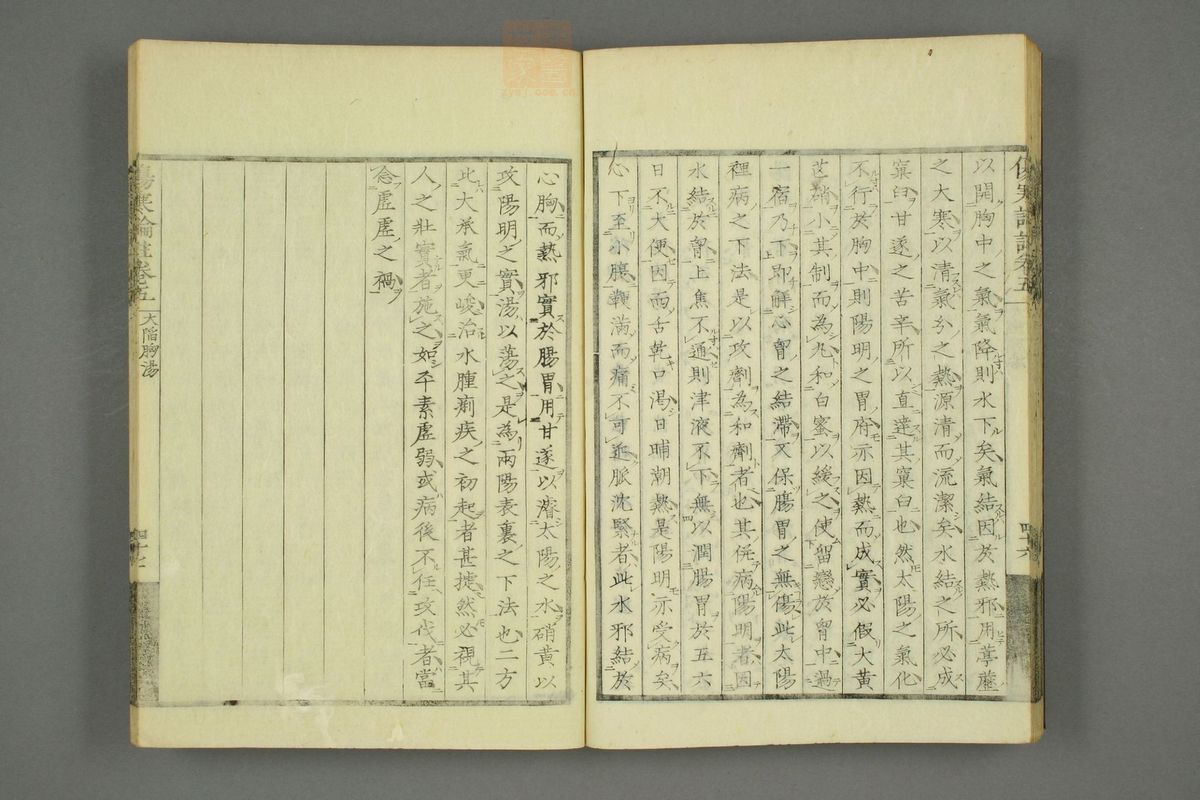 以開胸中之氣氣降則水下矣氣結因於熱邪用葶藶
之大寒以清氣分之熱源清而流潔矣水結之所必成
窠臼甘遂之苦辛所以直達其窠臼也然太陽之氣化
不行於胸中則陽明之胃府亦因熱而成實必假大黃
芒硝小其制而為丸和白蜜以緩之使留戀於胷中過
一宿乃下即解心胷之結滯又保腸胃之無傷此太陽
裡病之下法是以攻劑為和劑者也其併病陽明者因
水結於胷上焦不通則津液不下無以潤腸胃於五六
日不大便因而舌乾口渴日晡潮熱是陽明亦受病矣
心下至小腹鞕滿而痛不可近脈沈緊者此水邪結於
四十六
心胸而熱邪實於腸胃用甘遂以濬太陽之水硝黃以
攻陽明之實湯以蕩之是為兩陽表裏之下法也二方
比大承氣更峻治水腫痢疾之初起者甚捷然必視其
人之壯實者施之如平素虛弱或病後不任攻伐者當
念虛虛之禍
傷寒論註卷五 大陷胸湯
四十七